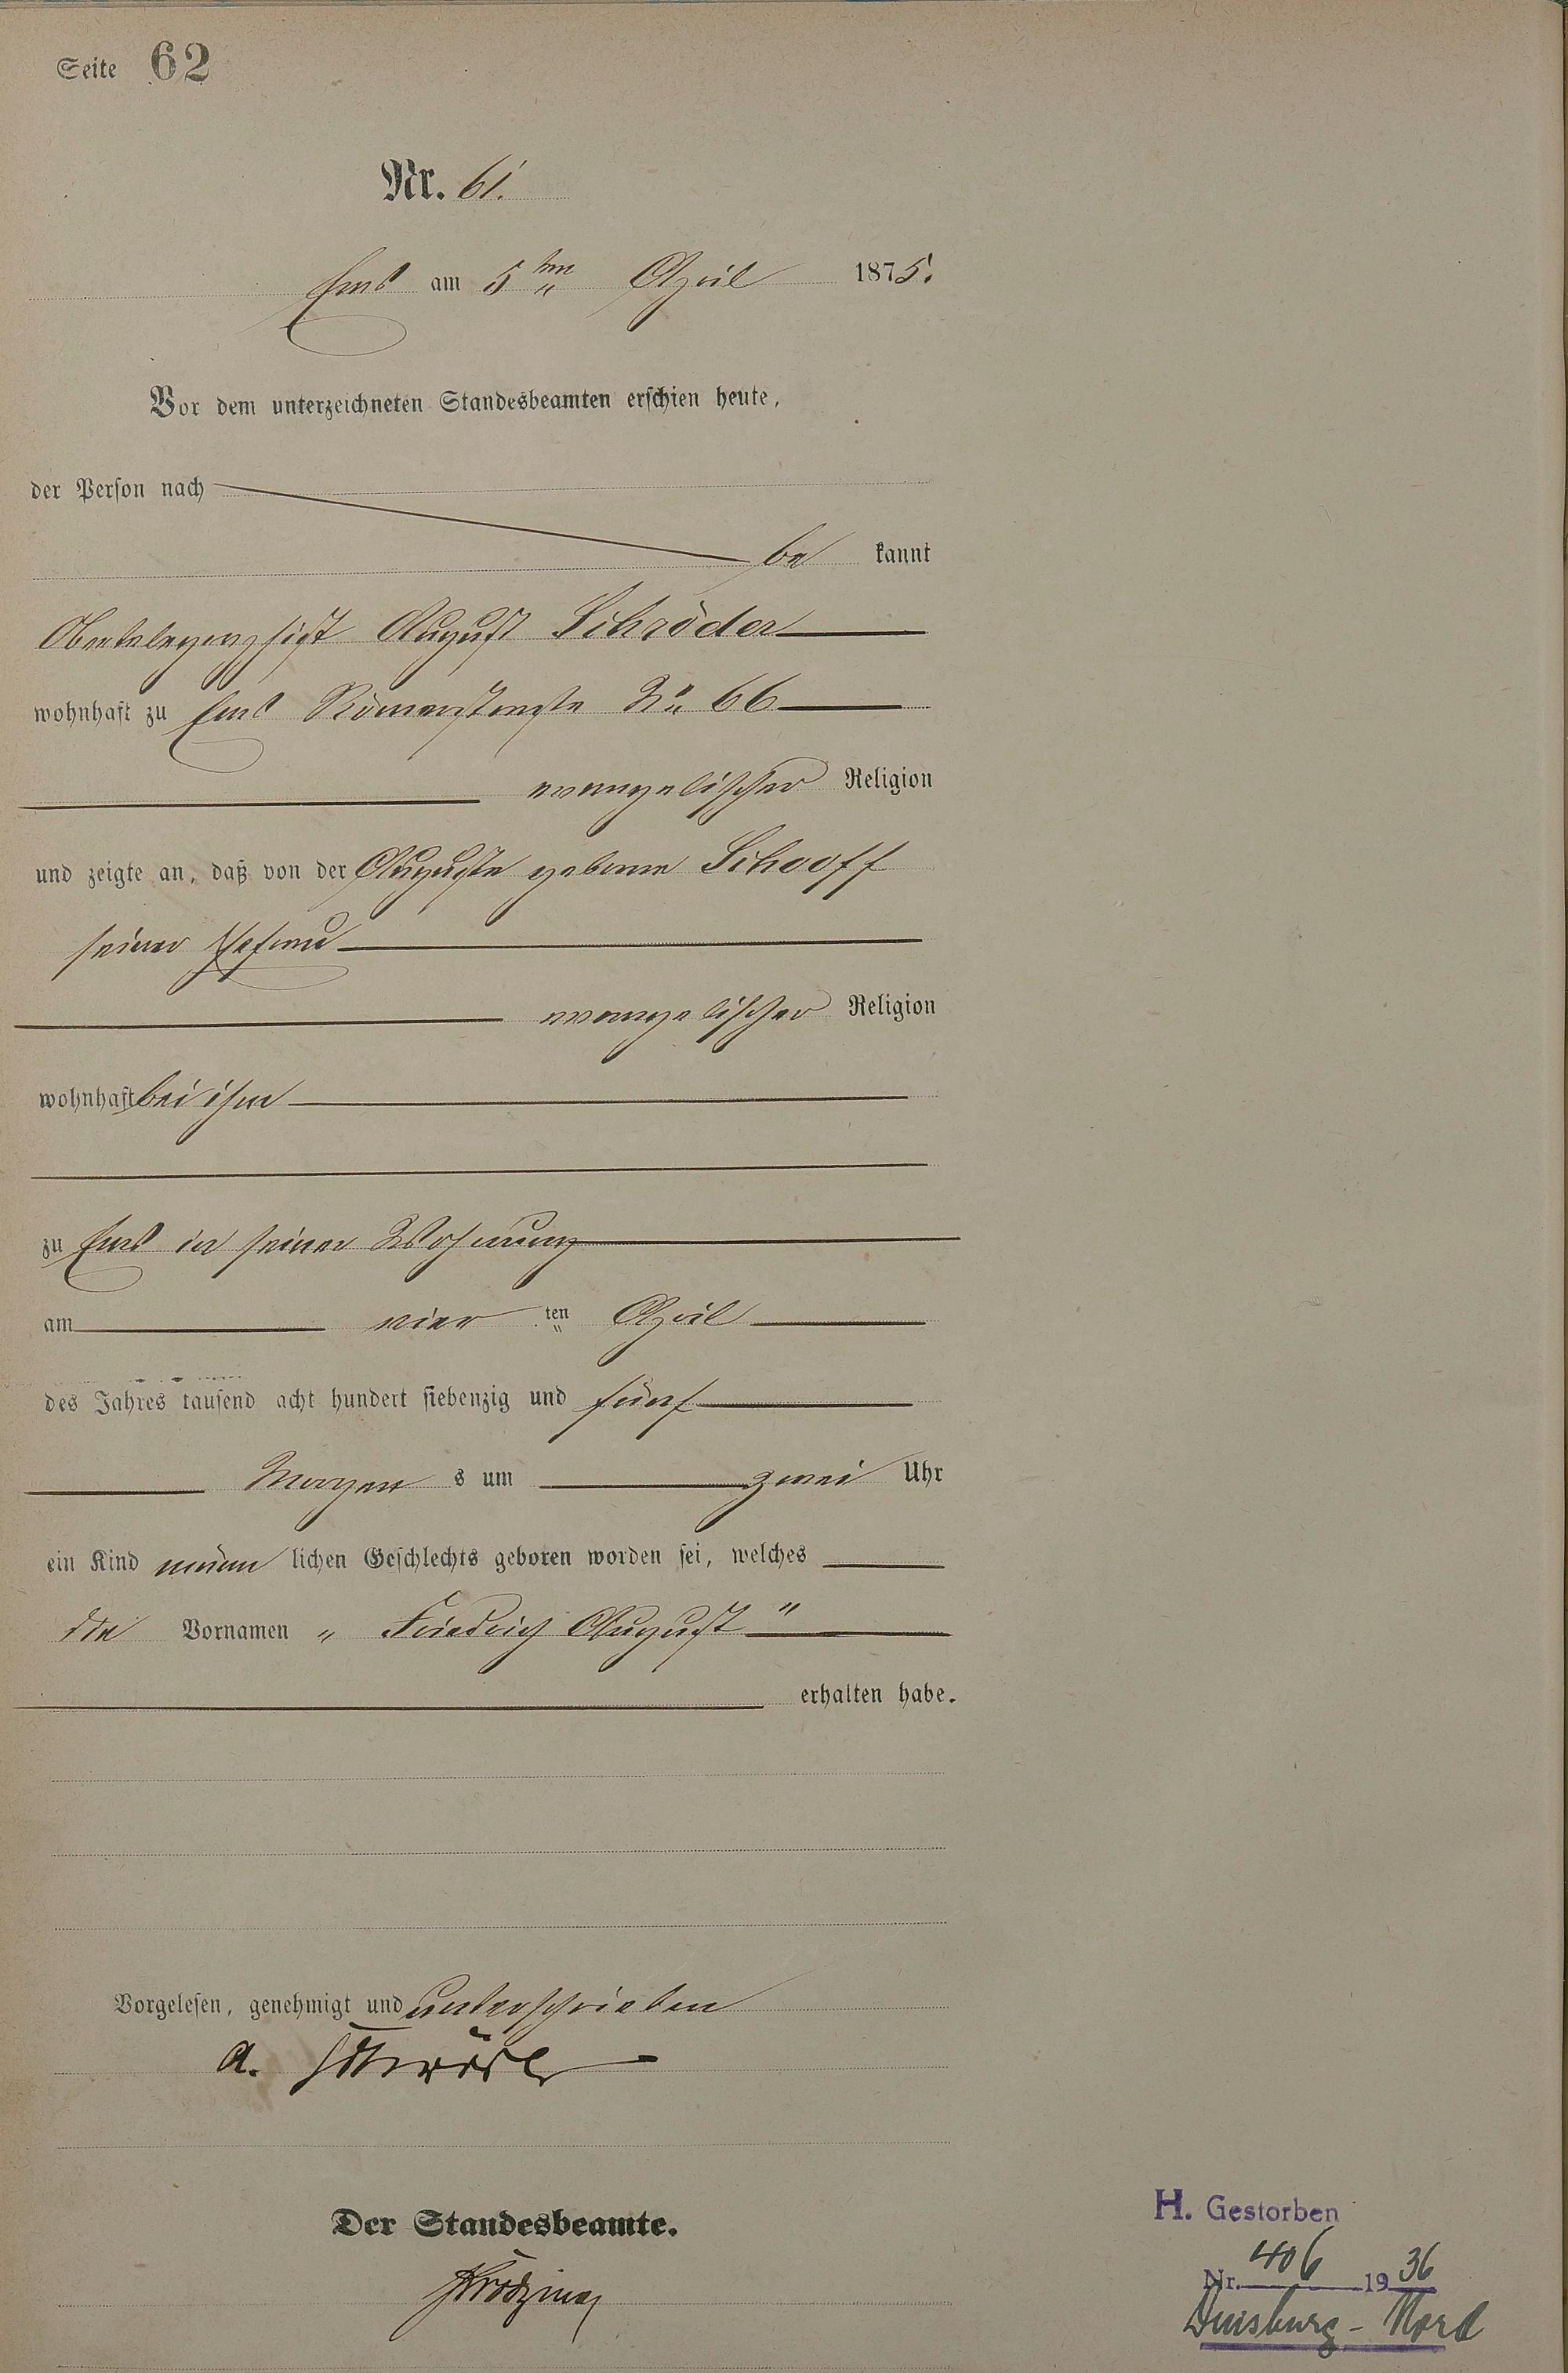 Seite 62
Nr. 61.
Ems am 5ten April 1875.
Vor dem unterzeichneten Standesbeamten erschien heute,
der Person nach
be kannt
August Schröder
wohnhaft zu Ems Römerstraße No 66
evangelischer Religion
und zeigte an, daß von der Auguste geborne Schooff
seiner Ehefrau
evangelischer Religion
wohnhaft bei ihm
zu Ems in seiner Wohnung
am vier ten April
des Jahres tausend acht hundert siebenzig und fünf
Morgen s um zwei Uhr
ein Kind männ lichen Geschlechts geboren worden sei, welches
die Vornamen „ Friedrich August "
erhalten habe.
Vorgelesen, genehmigt und unterschrieben
A. Schröder
Der Standesbeamte.
H. Gestorben
Nr. 406 1936
Duisburg - Nord